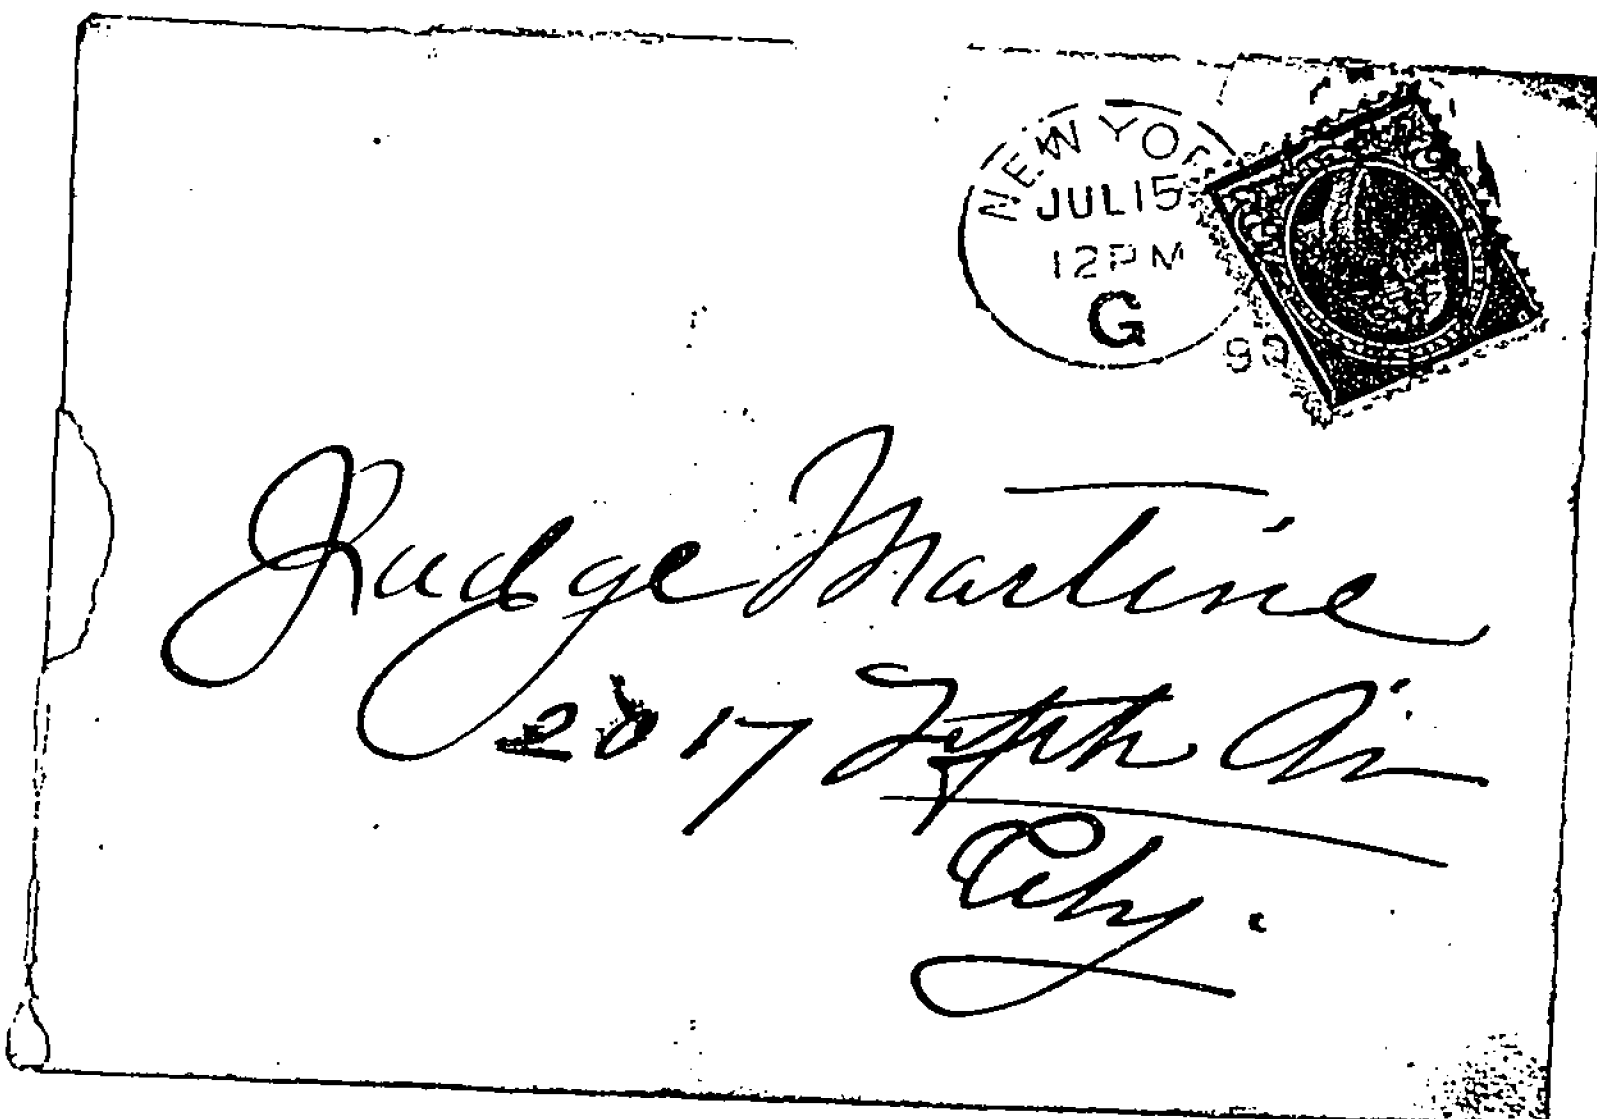 NEW YOR
JUL 15
12 PM
G
90
Judge Martine
2017 Fifth Av
City.